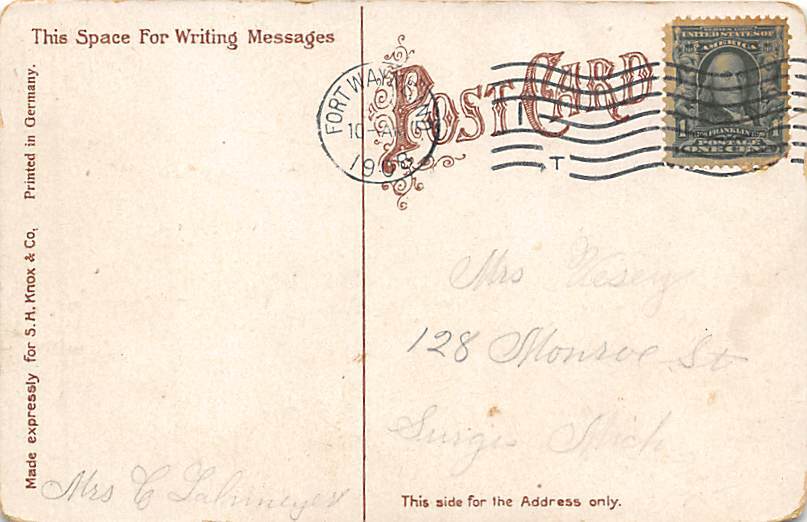 This Space For Writing Messages
POST CARD
FORT WAYNE, IND
10-AM
1908
T
SERIES 1902
UNITED STATES OF
AMERICA
1 FRANKLIN 1
POSTAGE
ONE CENT
Made expressly for S.H. Knox & Co, Printed in Germany.
Mrs Vesey
128 Monroe St
Mich
Mrs C Lahmeyer
This side for the Address only.